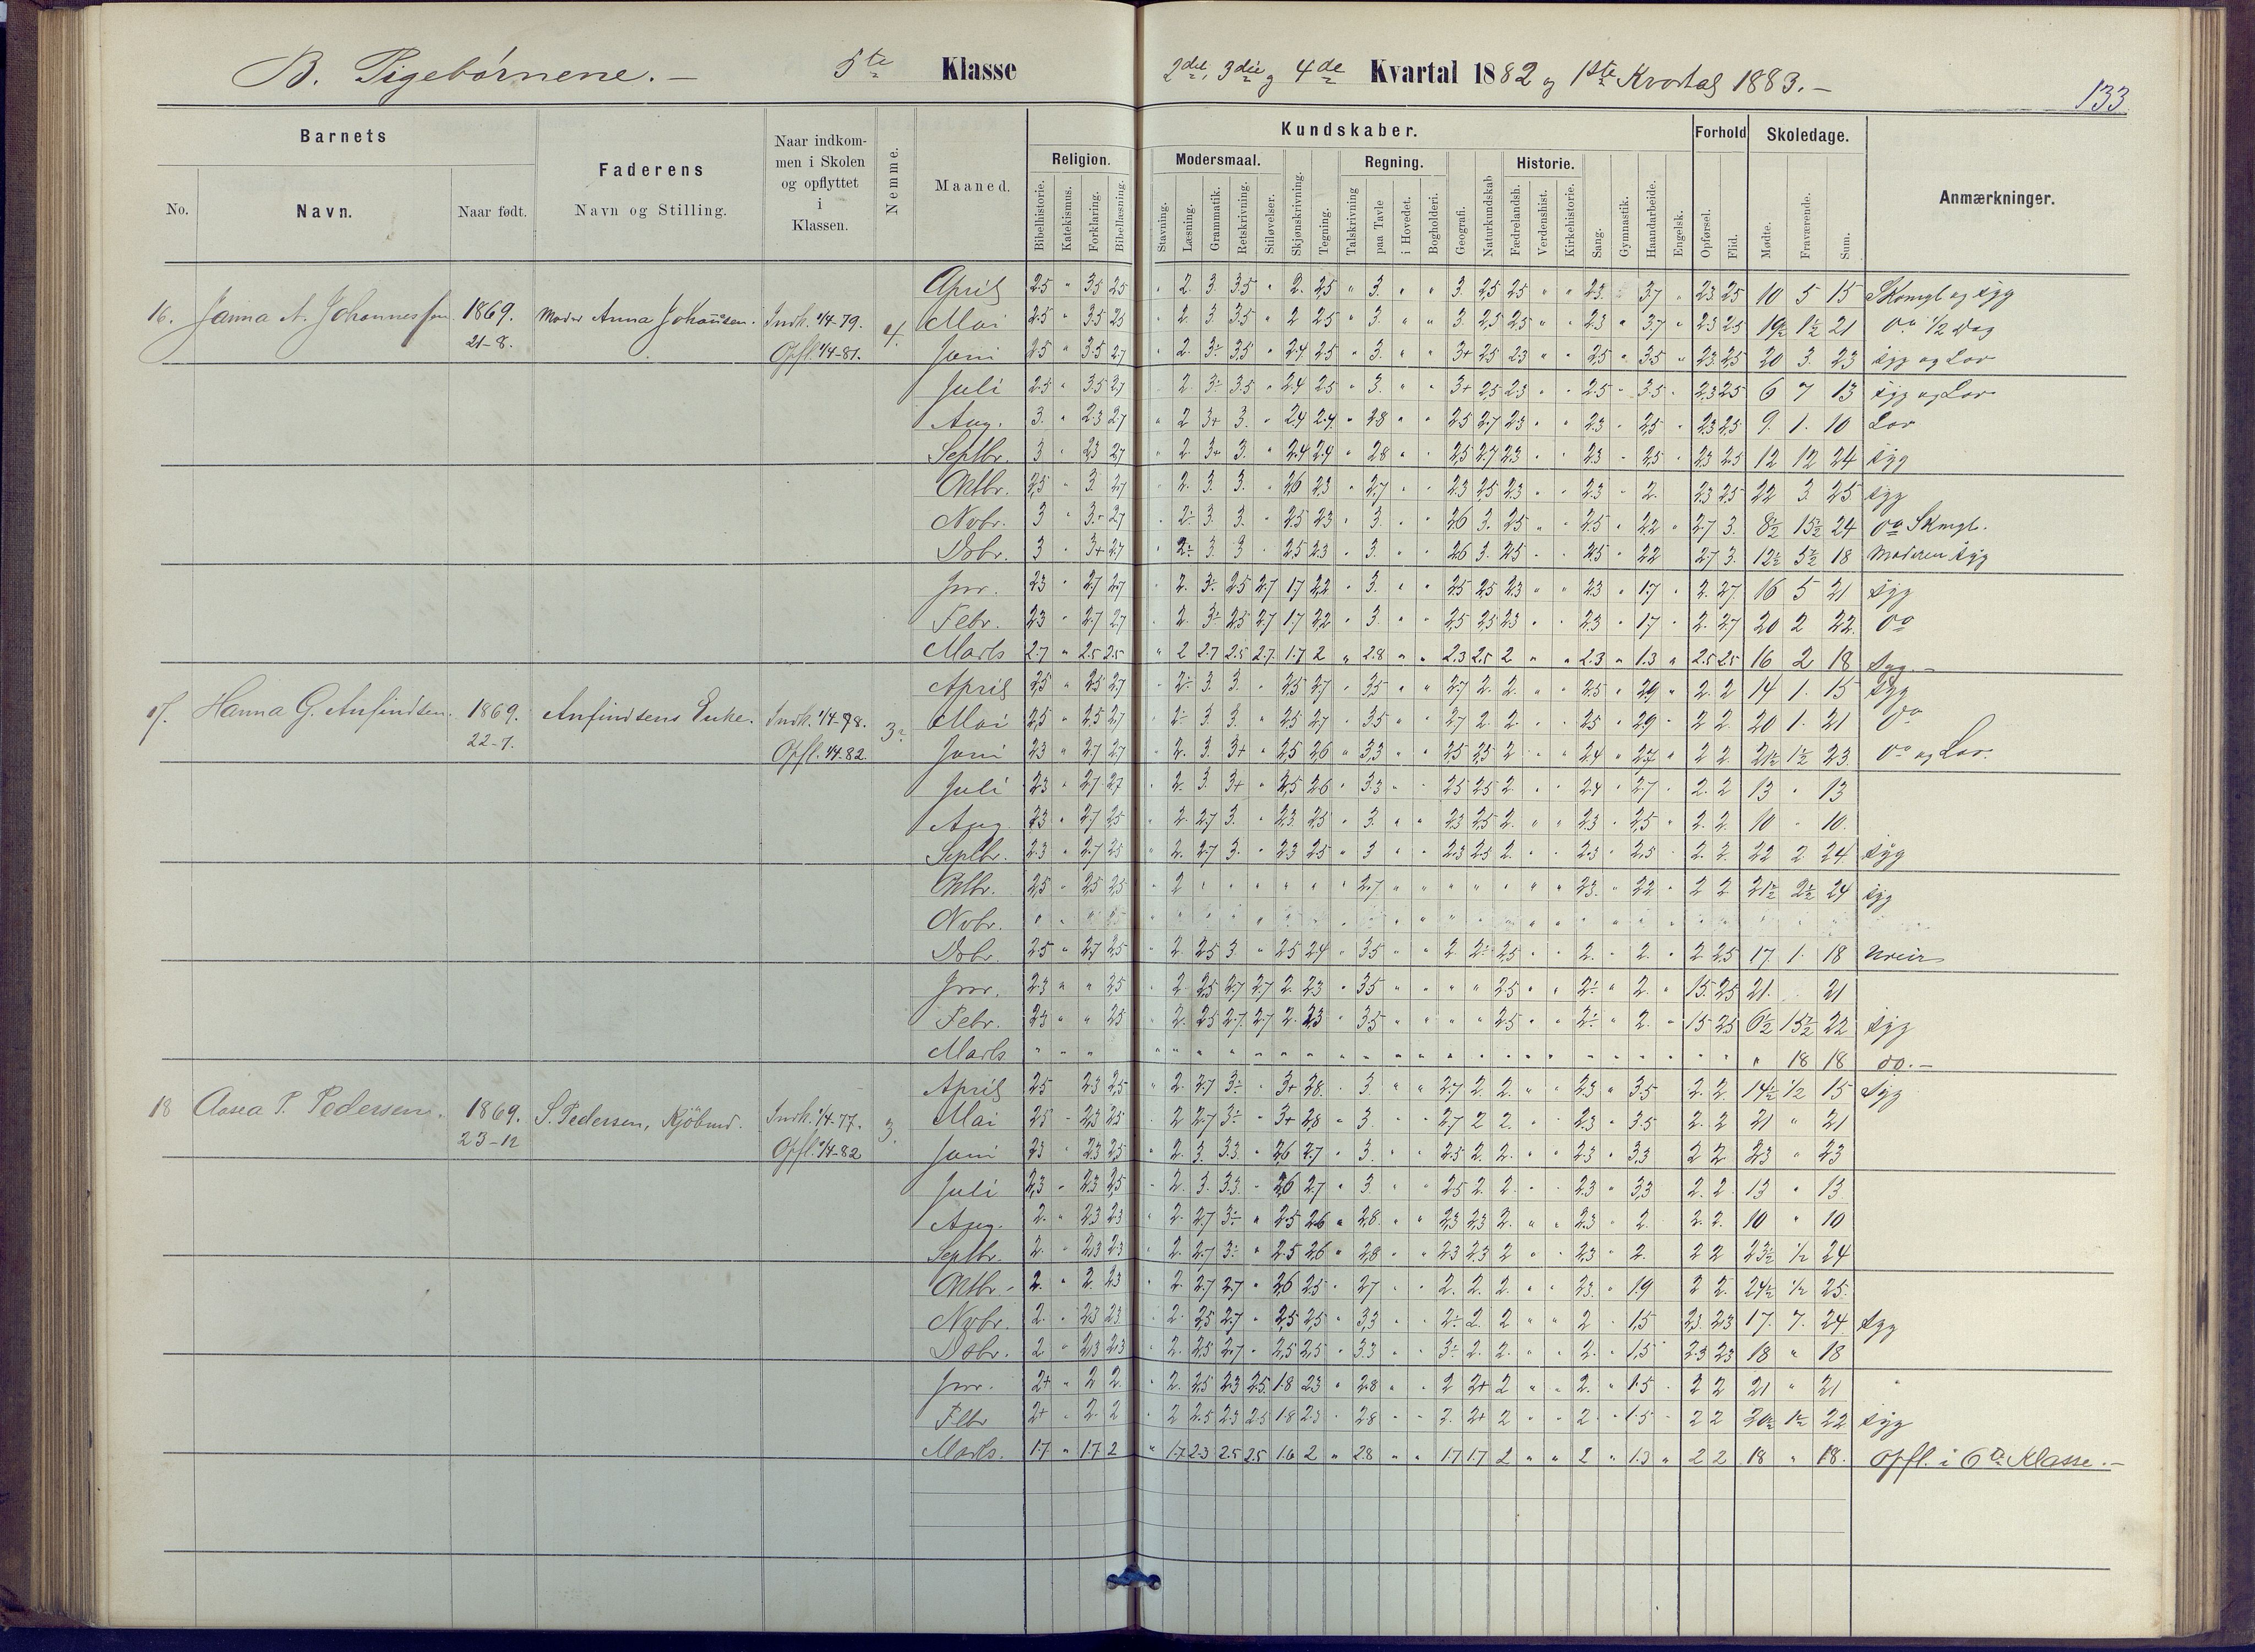 B. Pigebørnene. – 5te Klasse 2det, 3die og 4de Kvartal 1882 og 1ste Kvartal 1883. –
133.
Barnets
No.
Navn.
Naar født.
Faderens
Navn og Stilling.
Naar indkom-
men i Skolen
og opflyttet
i
Klassen.
Nemme.
Maaned.
Kundskaber.
Religion.
Bibelhistorie.
Katekismus.
Forklaring.
Bibellæsning.
Modersmaal.
Stavning.
Læsning.
Grammatik.
Retskrivning.
Stiløvelser.
Skjønskrivning.
Tegning.
Regning.
Talskrivning
paa Tavle
i Hovedet.
Bogholderi.
Geografi.
Naturkundskab
Historie.
Fædrelandsh.
Verdenshist.
Kirkehistorie.
Sang.
Gymnastik.
Haandarbeide.
Engelsk.
Forhold
Opførsel.
Flid.
Skoledage.
Mødte.
Fraværende.
Sum.
Anmærkninger.
16. Janna A. Johannessen 1869. 21-8. Moder Anna Johansen. Indk. 1/4-79. Opfl. 1/4-81. 4.
April 2.5 " 3.5 2.5 " 2. 3. 3.5 " 2. 2.5 " 3. " " 3. 2.5 2.5 " " 2.3. 3.7 " 2.3 2.5 10 5 15 Skomgl og syg
Mai 2.5 " 3.5 2.5 " 2. 3 3.5 " 2 2.5 " 3. " " 3. 2.5 2.5 " " 2.3 " 3.7 " 2.3 2.5 19½ 1½ 21 Do ½ Dag
Juni 2.5 " 3.5 2.7 " 2. 3÷ 3.5 " 2.4 2.5 " 3. " " 3+ 2.5 2.3 " " 2.5 " 3.5 " 2.3 2.5 20 3. 23 syg og Lov
Juli 2.5 " 3.5 2.7 2 3÷ 3.5 " 2.4 2.5 " 3. " " 3+ 2.5 2.3 " " 2.5 " 3.5 " 2.3 2.5 6 7 13 syg og Lov
Aug. 3. " 2.3 2.7 " 2 3+ 3. " 2.4 2.4 " 2.8 " " 2.5 2.7 2.3 " " 2.3 " 2.5 " 2.3 2.5 9. 1. 10 Lov
Septbr. 3 " 2.3 2.7 " 2. 3+ 3. " 2.4 2.4 " 2.8 " " 2.5 2.7 2.3 " " 2.3 " 2.5 " 2.3 2.5 12 12 24 syg
Oktbr. 2.5 " 3. 2.7 2. 3. 3. " 2.6 2.3 " 2.7 " " 2.3 2.5 2.3 " " 2.3 " 2. 2.3 2.5 22 3. 25 syg
Nvbr. 3 " 3+ 2.7 " 2÷ 3. 3. " 2.5 2.3 " 3. " " 2.6 3. 2.5 " " 2.5 " 2.2 " 2.7 3. 8½ 15½ 24 Do Skmgl.
Dcbr. 3 " 3+ 2.7 " 2÷ 3. 3 " 2.5 2.3 " 3. " " 2.6 3. 2.5 " " 2.5 " 2.2 2.7 3. 12½ 5½ 18 Moderen syg
Jnr. 2.3 " 2.7 2.7 " 2. 3÷ 2.5 2.7 1.7 2.2 " 3. " " 2.5 2.5 2.3 " " 2.3 " 1.7 " 2. 2.7 16 5 21 syg
Febr. 2.3 " 2.7 2.7 " 2. 3÷ 2.5 2.7 1.7 2.2 " 3. " " 2.5 2.5 2.3 " " 2.3 " 1.7 " 2. 2.7 20 2 22. Do
Marts 2.7 " 2.5 2.5 " 2 2.7 2.5 2.7 1.7 2 " 2.8 " " 2.3 2.5 2 " " 2.3 " 1.3 " 2.5 2.5 16 2 18 syg. –
17. Hanna G. Anfindsen. 1869. 22-7. Anfindsens Enke. Indk. 1/4-78. Opfl. 1/4-82. 3÷
April 2.5 " 2.5 2.7 " 2÷ 3. 3. " 2.5 2.7 " 3.5 " " 2.7 2. 2. " " 2.5 " 2.9 " 2. 2 14 1. 15 syg
Mai 2.5 " 2.5 2.7 " 2÷ 3 3. " 2.5 2.7 " 3.5 " " 2.7 2. 2. " " 2.5 " 2.9 " 2 2. 20 1. 21 Do
Juni 2.3 " 2.7 2.7 " 2. 3 3+ " 2.5 2.6 " 3.3 " " 2.5 2.5 2. " " 2.4 " 2.7 " 2 2. 21½ 1½ 23. Do og Lov.
Juli 2.3 " 2.7 2.7 " 2. 3. 3+ " 2.5 2.6 " 3.3 " " 2.5 2.5 2. " " 2.4 " 2.7 " 2. 2 13 " 13
Aug 2.3 " 2.7 2.5 " 2. 2.7 3. " 2.3 2.5 " 3. " " 2.3 2.5 2. " " 2.3 " 2.5 " 2. 2. 10 " 10.
Septbr. 2.3 " 2.7 2.5 " 2. 2.7 3. " 2.3 2.5 " 3 " " 2.3 2.5 2. " " 2.3 " 2.5 " 2. 2. 22 2 24 syg
Oktbr. 2.5 " 2.5 2.5 " 2 " " " " " " 2.7 " " " " " " " 2.3. " 2.2 " 2 2 21½ 2½ 24 syg
Nvbr.
Dcbr. 2.5 " 2.7 2.5 " 2 2.5 3 " 2.5 2.4 " 3.5 " " 2. 2÷ 2.5 " " 2. " 2. " 2 2.5 17 1. 18 Uveir
Jnr. 2.3 " " 2.5 " 2 2.5 2.7 2.7 2. 2.3 " 3.5 " " " " 2.5 " " 2÷ " 2. " 1.5 2.5 21. 21
Febr. 2.3 " " 2.5 " 2. 2.5 2.7 2.7 2. 2.3 " 3.5 " " " " 2.5 " " 2÷ " 2. " 1.5 2.5 6½ 15½ 22 syg
Marts " " " " " " " " " " " " " " " " " " " " " " " " " " " 18 18 do. –
18 Aasea P. Pedersen. 1869. 23-12 S. Pedersen, Kjöbmd. Indk. 1/4-77. Opfl. 1/4-82 3.
April 2.5 2.3 2.5 " 2. 2.7 3÷ " 3+ 2.8 " 3 " " 2.7 2 2. " " 2.3 " 3.5 2. 2. 14½ ½ 15 Syg
Mai 2.5 " 2.3 2.5 2 2.7 3÷ " 3+ 2.8 " 3. " " 2.7 2 2. " " 2.3 " 3.5 " 2. 2 21 " 21
Juni 2.3 " 2.3 2.5 " 2. 3. 3.3 " 2.6 2.7 " 3. " " 2.5 2. 2. " " 2.3 " 3.3 2 2. 23 " 23
Juli 2.3 " 2.3 2.5 " 2. 3. 3.3 " 2.6 2.7 " 3. " " 2.5 2. 2. " " 2.3 " 3.3 2. 2. 13 " 13
Aug. 2. " 2.3 2.3 " 2. 2.7 3÷ " 2.5 2.6 " 2.8. " " 2.3 2.3 2. " " 2.3 " 2. 2. 2. 10 " 10
Septbr. 2. " 2.3 2.3 " 2. 2.7 3÷ " 2.5 2.6 " 2.8 " " 2.3 2.3 2 " " 2.3 " 2. 2 2 23½ ½ 24
Oktbr. 2. " 2. 2.3 " 2 2.7 2.7 " 2.6 2.5 " 2.7 " " 2. 2. 2. " " 2.3. " 1.9 2 2. 24½ ½ 25.
Nvbr. 2. " 2.3 2.3 " 2 2.5 2.7 " 2.5 2.5 " 3.3 " " 2÷ 2. 2 " " 2 " 1.5 2.3 2.3 17. 7. 24. syg
Dcbr. 2 " 2.3 2.3 " 2. 2.5 2.7 " 2.5 2.5 " 3.3 " " 3÷ 2. 2. " " 2. " 1.5 2.3 2.3 18 " 18
Jnr. 2+ " 2 2. " 2. 2.5 2.3 2.5 1.8 2.3 " 2.8 " " 2 2+ 2 " " 2. " 1.5 " 2 2 21 " 21 "
Febr 2+ " 2. 2 " 2 2.5 2.3 2.5 1.8 2.3 " 2.8 " " 2. 2+ 2 " " 2 " 1.5 " 2 2 20½ 1½ 22 syg
Marts. 1.7 " 1.7 2 " 1.7 2.3 2.5 2.5 1.6 2 " 2.8 " " 1.7 1.7 2 " " 2 " 1.3 " 2 2 18 " 18. Opfl. i 6te Klasse. –